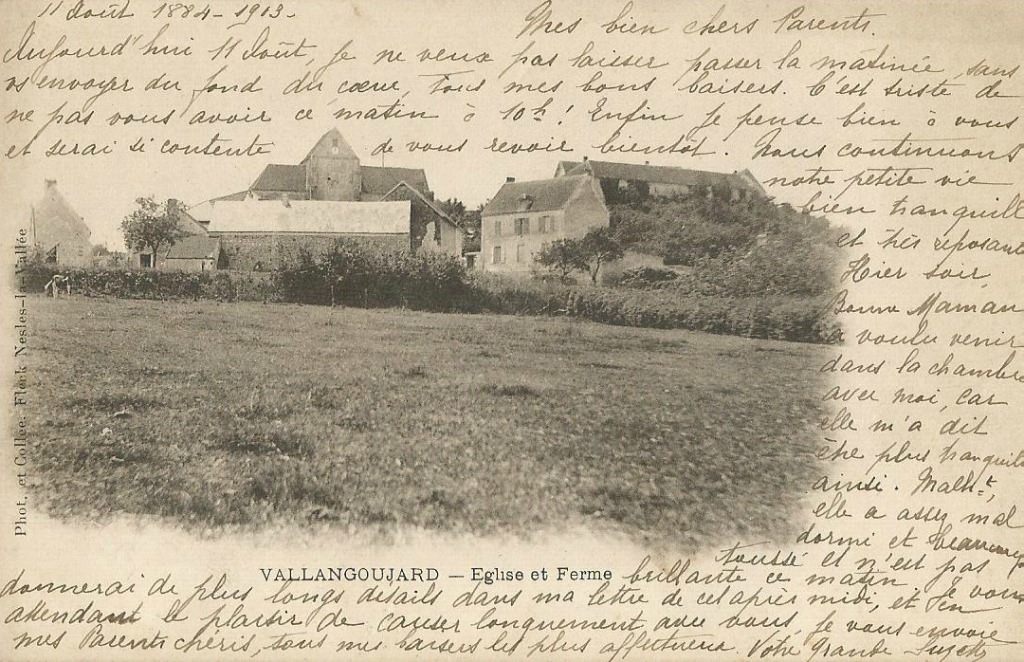 11 Août 1884 - 1913.
Mes bien chers Parents.
Aujourd'hui 11 Août, je ne veux pas laisser passer la matinée, sans
vs envoyer du fond du cœur, tous mes bons baisers. C'est triste de
ne pas vous avoir ce matin à 10h! Enfin je pense bien à vous
et serai si contente de vous revoir bientôt. Nous continuons
notre petite vie
bien tranquille
et très reposante
Hier soir,
Bonne Maman
a voulu venir
dans la chambre
avec moi, car
elle m'a dit
être plus tranquille
ainsi. Malht,
elle a assez mal
dormi et beaucoup
toussé et n'est pas
brillante ce matin. Je vous
donnerai de plus longs détails dans ma lettre de cet après midi, et j'en
attendant le plaisir de causer longuement avec vous, je vous envoie
mes Parents chéris, tous mes baisers les plus affectueux. Votre grande Suzette
VALLANGOUJARD — Eglise et Ferme
Phot. et Collec. Fleck Nesles-la-Vallée